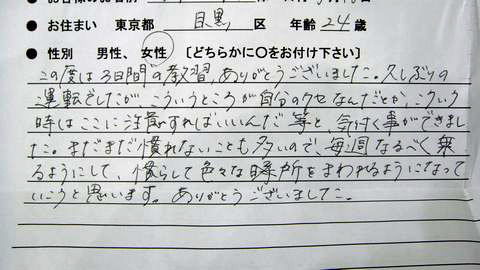 ● お住まい 東京都 目黒 区 年齢 24 歳
● 性別 男性、女性 [どちらかに○をお付け下さい]
この度は3日間の教習、ありがとうございました。久しぶりの
運転でしたが、こういうところが自分のクセなんだとか、こういう
時はここに注意すればいいんだ等と、気付く事ができまし
た。まだまだ慣れないことも多いので、毎週なるべく乗
るようにして、慣らして色々な場所をまわれるようになって
いこうと思います。ありがとうございました。